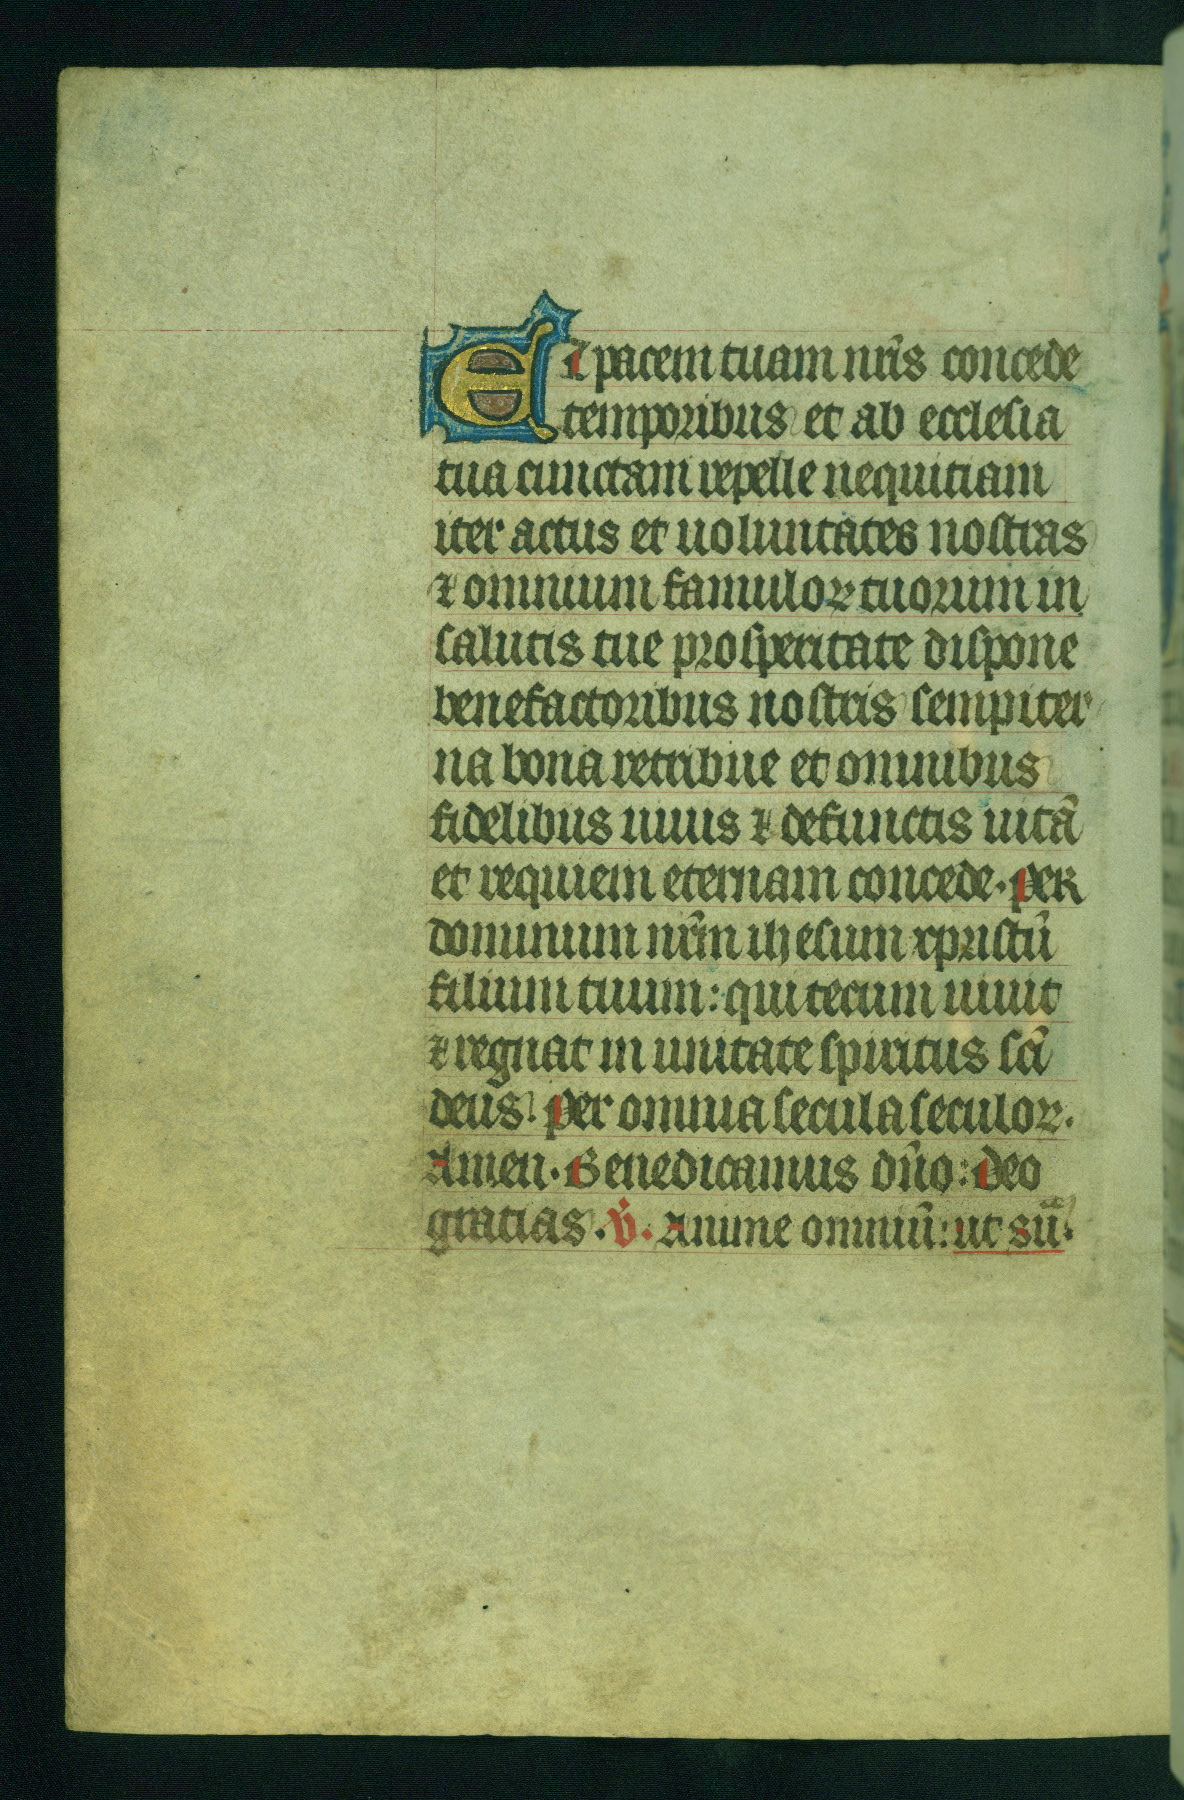 Et pacem tuam nr̄is concede
temporibus et ab ecclesia
tua cunctam repelle nequitiam
iter actus et uoluntates nostras
⁊ omnium famuloꝝ tuorum in
salutis tue prosperitate dispone
benefactoribus nostris sempiter
na bona retribue et omnibus
fidelibus uiuis ⁊ defunctis uitā
et requiem eternam concede. per
dominum nr̄m ihesum xpristū
filium tuum: qui tecum uiuit
⁊ regnat in unitate spiritus sc̄i
deus. per omnia secula seculoꝝ.
Amen. Benedicamus dn̄o: deo
gratias. v̄. Anime omniū: ut sū.